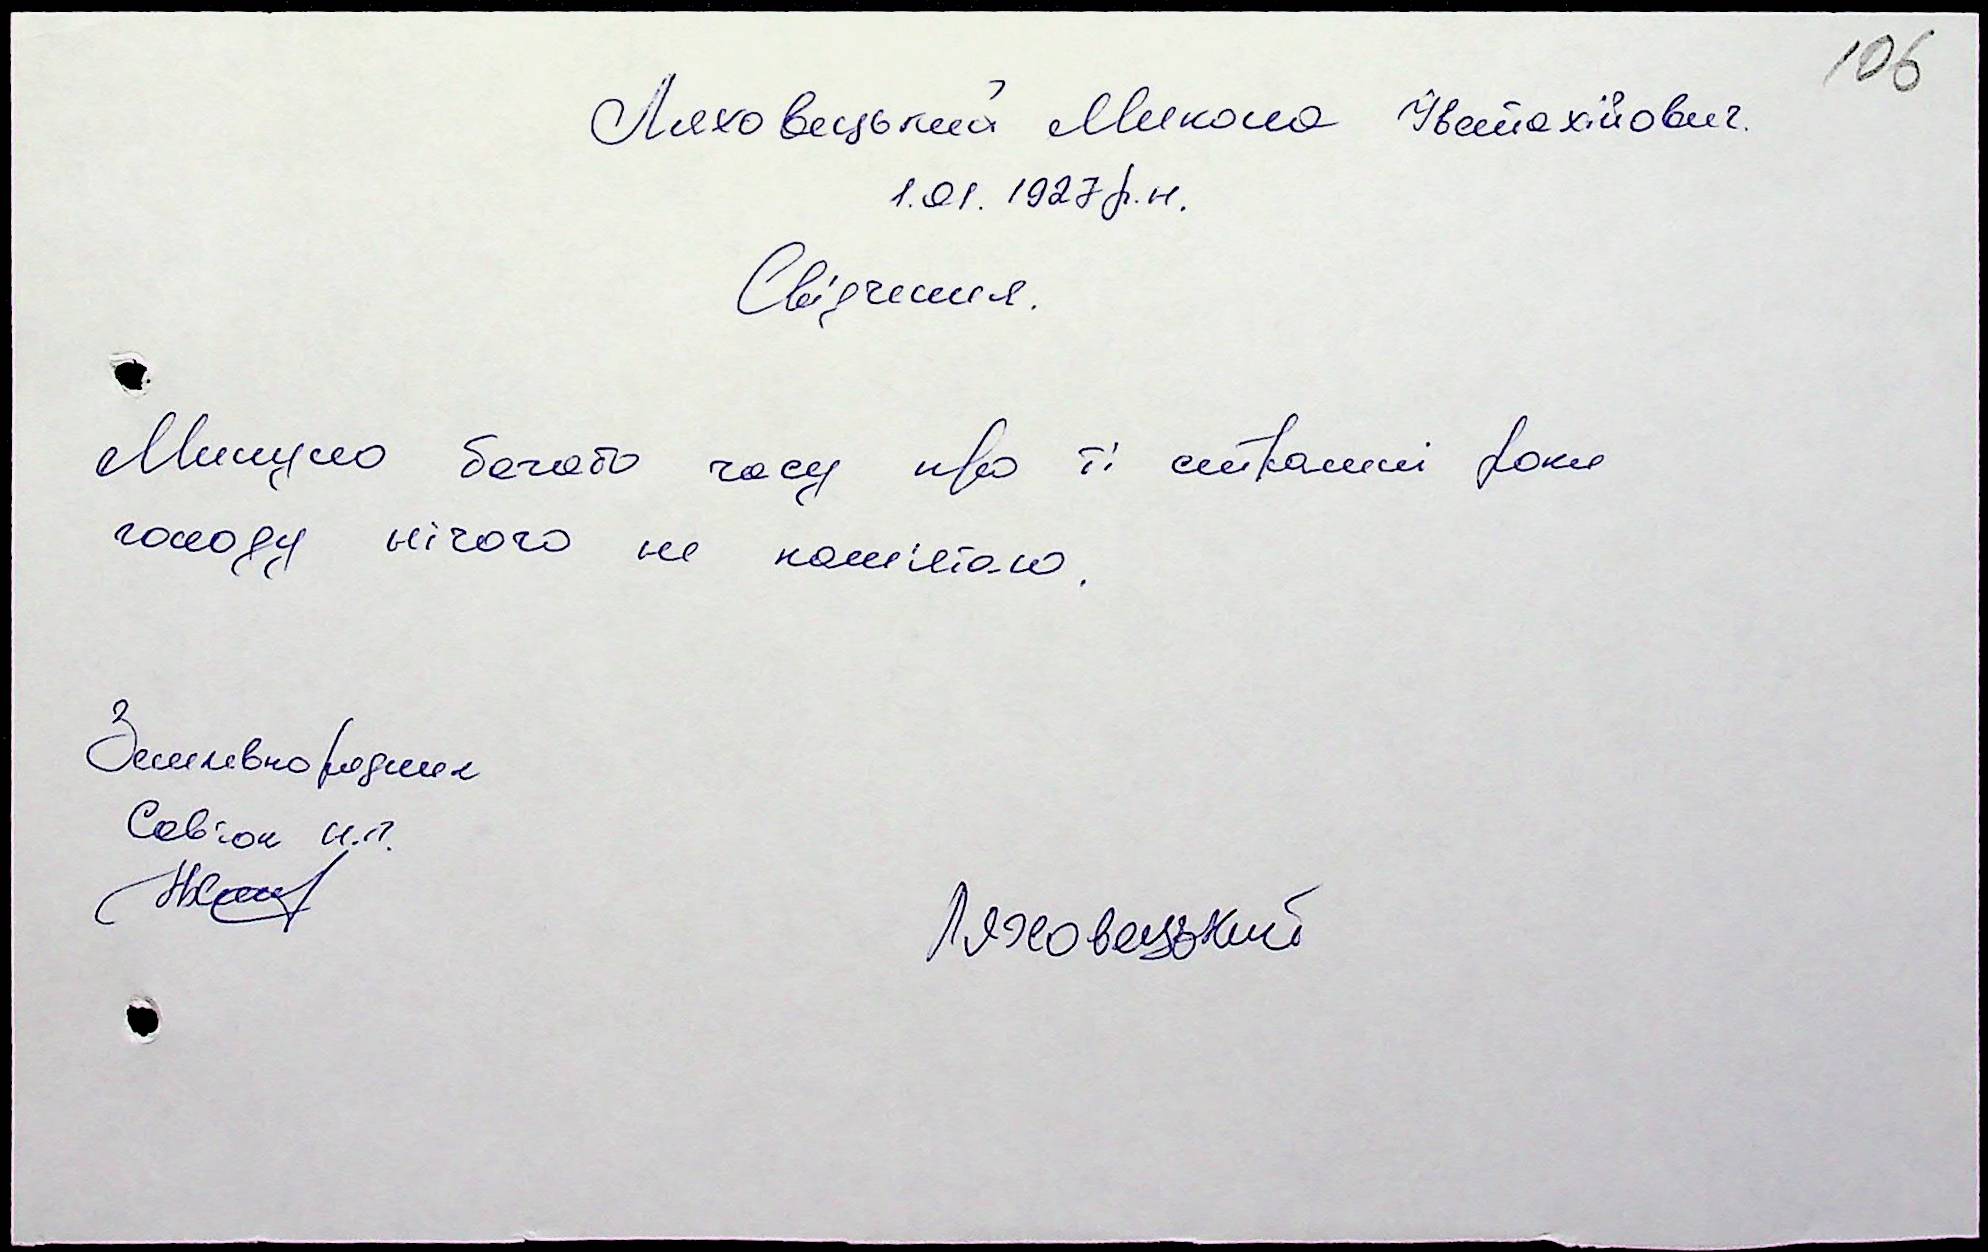 106
Ляховецький Микола Івстахійович.
1.01.1927 р.н.
Свідчення.
Минуло багато часу про ті страшні роки
голоду нічого не памʼятаю.
Землевпорядник
Савіок Н.П.
Ляховецький